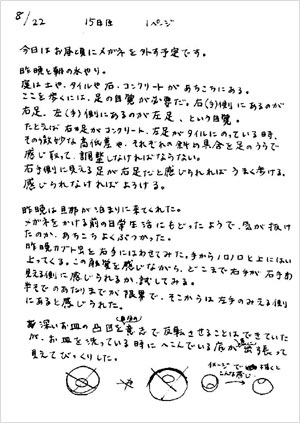 8/22 15日目 1ページ
今日はお昼頃にメガネを外す予定です。
昨晩と朝の水やり。
庭は土や、タイルや石・コンクリートがあちこちにある。
ここを歩くには、足の目覚が必要だ。右(手)側にあるのが
右足、左(手)側にあるのが左足、という目覚。
たとえば右足がコンクリート、左足がタイルにのっている時、
その微妙な高低差や、それぞれの斜め具合を足のうらで
感じ取って、調整しなければならない。
右手側に見える足が右足だと感じられればうまく歩ける。
感じられなければよろける。
昨晩は旦那が泊まりに来てくれた。
メガネをかける前の日常生活にもどったようで、気が抜け
たのか、あちこちよくぶつかった。
昨晩カブト虫を右手にはわせてみた。手からノロノロと上にはい
上ってくる。この触覚を感じながら、どこまで右手が右手の
見える側に感じられるか、試してみる。
半そでのあたりまでが限界で、そこからは左手のみえる側
にあると感じられた。
深いお皿の凸凹を意志で(自分の)反転させることはできていた
が、お皿を洗っている時にへこんでいる底が逆に出張って
見えてびっくりした。
イメージで描くと
こんな感じ